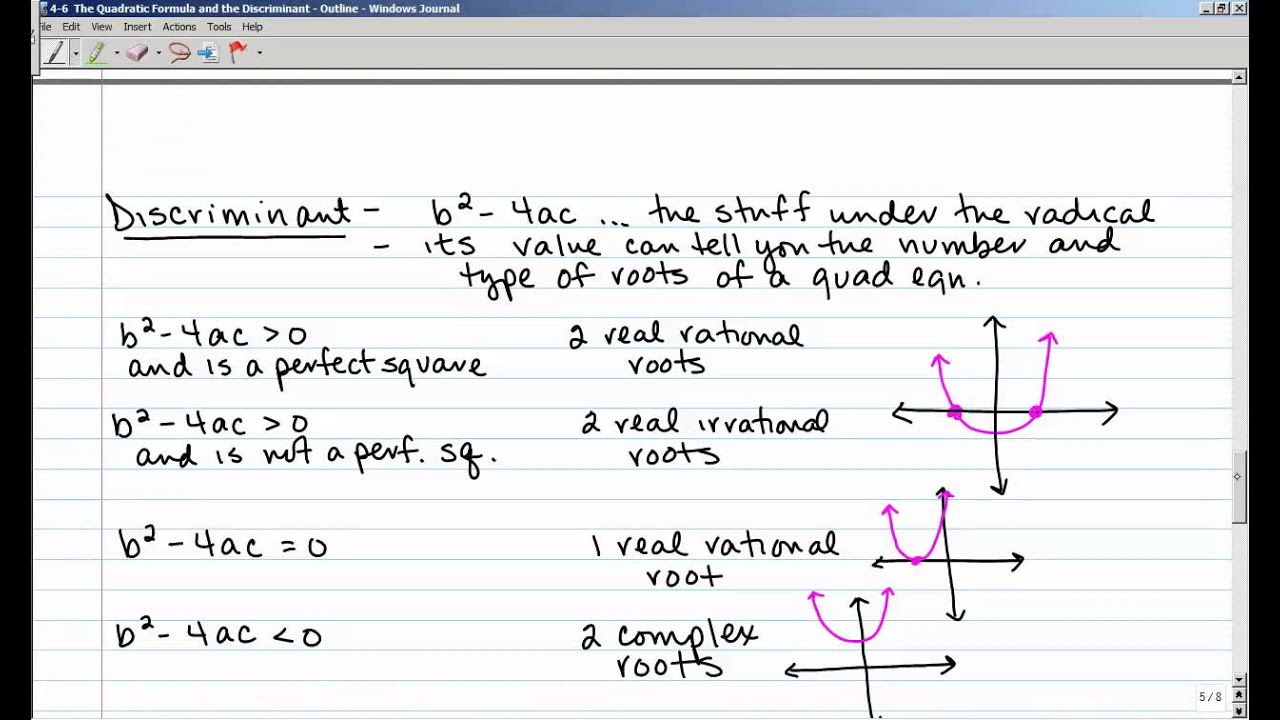 4-6 The Quadratic Formula and the Discriminant - Outline - Windows Journal
File Edit View Insert Actions Tools Help
Discriminant - b² - 4ac ... the stuff under the radical
- its value can tell you the number and
type of roots of a quad eqn.
b² - 4ac > 0 2 real rational
and is a perfect square roots
b² - 4ac > 0 2 real irrational
and is not a perf. sq. roots
b² - 4ac = 0 1 real rational
root
b² - 4ac < 0 2 complex
roots
5 / 8